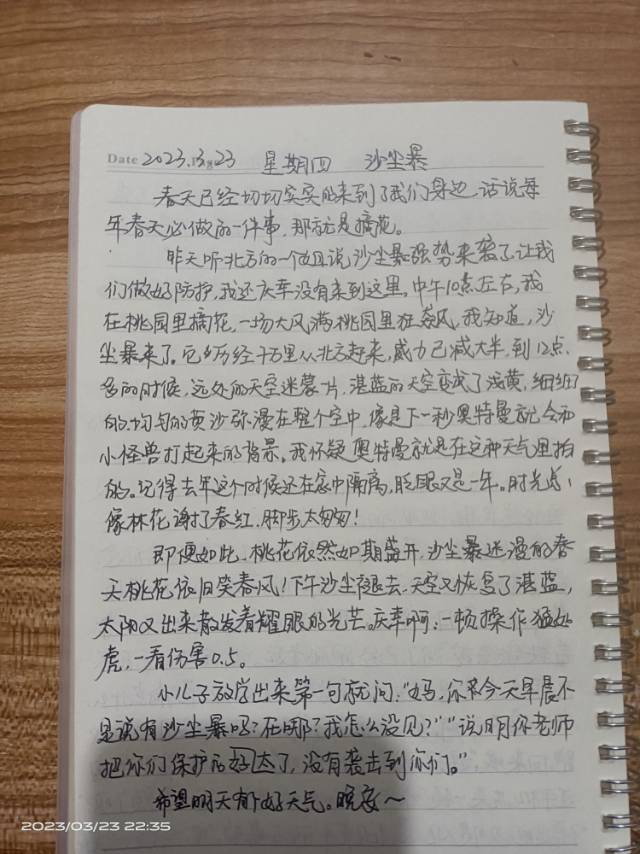 Date 2023.3.23 星期四 沙尘暴
春天已经切切实实的来到了我们身边,话说每
年春天必做的一件事,那就是摘花。
昨天听北方的一个说沙尘暴强势来袭了,让我
们做好防护,我还庆幸没有来到这里,中午10点左右,我
在桃园里摘花,一场大风满桃园里狂飙风,我知道,沙
尘暴来了。它历经千万里从北方赶来,威力已减大半,到12点
多的时候,远处的天空迷蒙一片,湛蓝的天空变成了浅黄,细细
的,均匀的黄沙弥漫在整个空中,像是下一秒奥特曼就会和
小怪兽打起来的背景。我怀疑奥特曼就是在这种天气里拍
的。记得去年这个时候还在家中隔离,眨眼又是一年。时光总
像林花谢了春红,脚步太匆匆!
即便如此,桃花依然如期盛开,沙尘暴迷漫的春
天桃花依旧笑春风!下午沙尘褪去,天空又恢复了湛蓝,
太阳又出来散发着耀眼的光芒。庆幸啊:一顿操作猛如
虎,一看伤害0.5。
小儿子放学出来第一句就问:“妈,你不今天早晨不
是说有沙尘暴吗?在哪?我怎么没见?”“说明你老师
把你们保护的好太了,没有袭击到你们。”
希望明天有个好天气。晚安~
2023/03/23 22:35